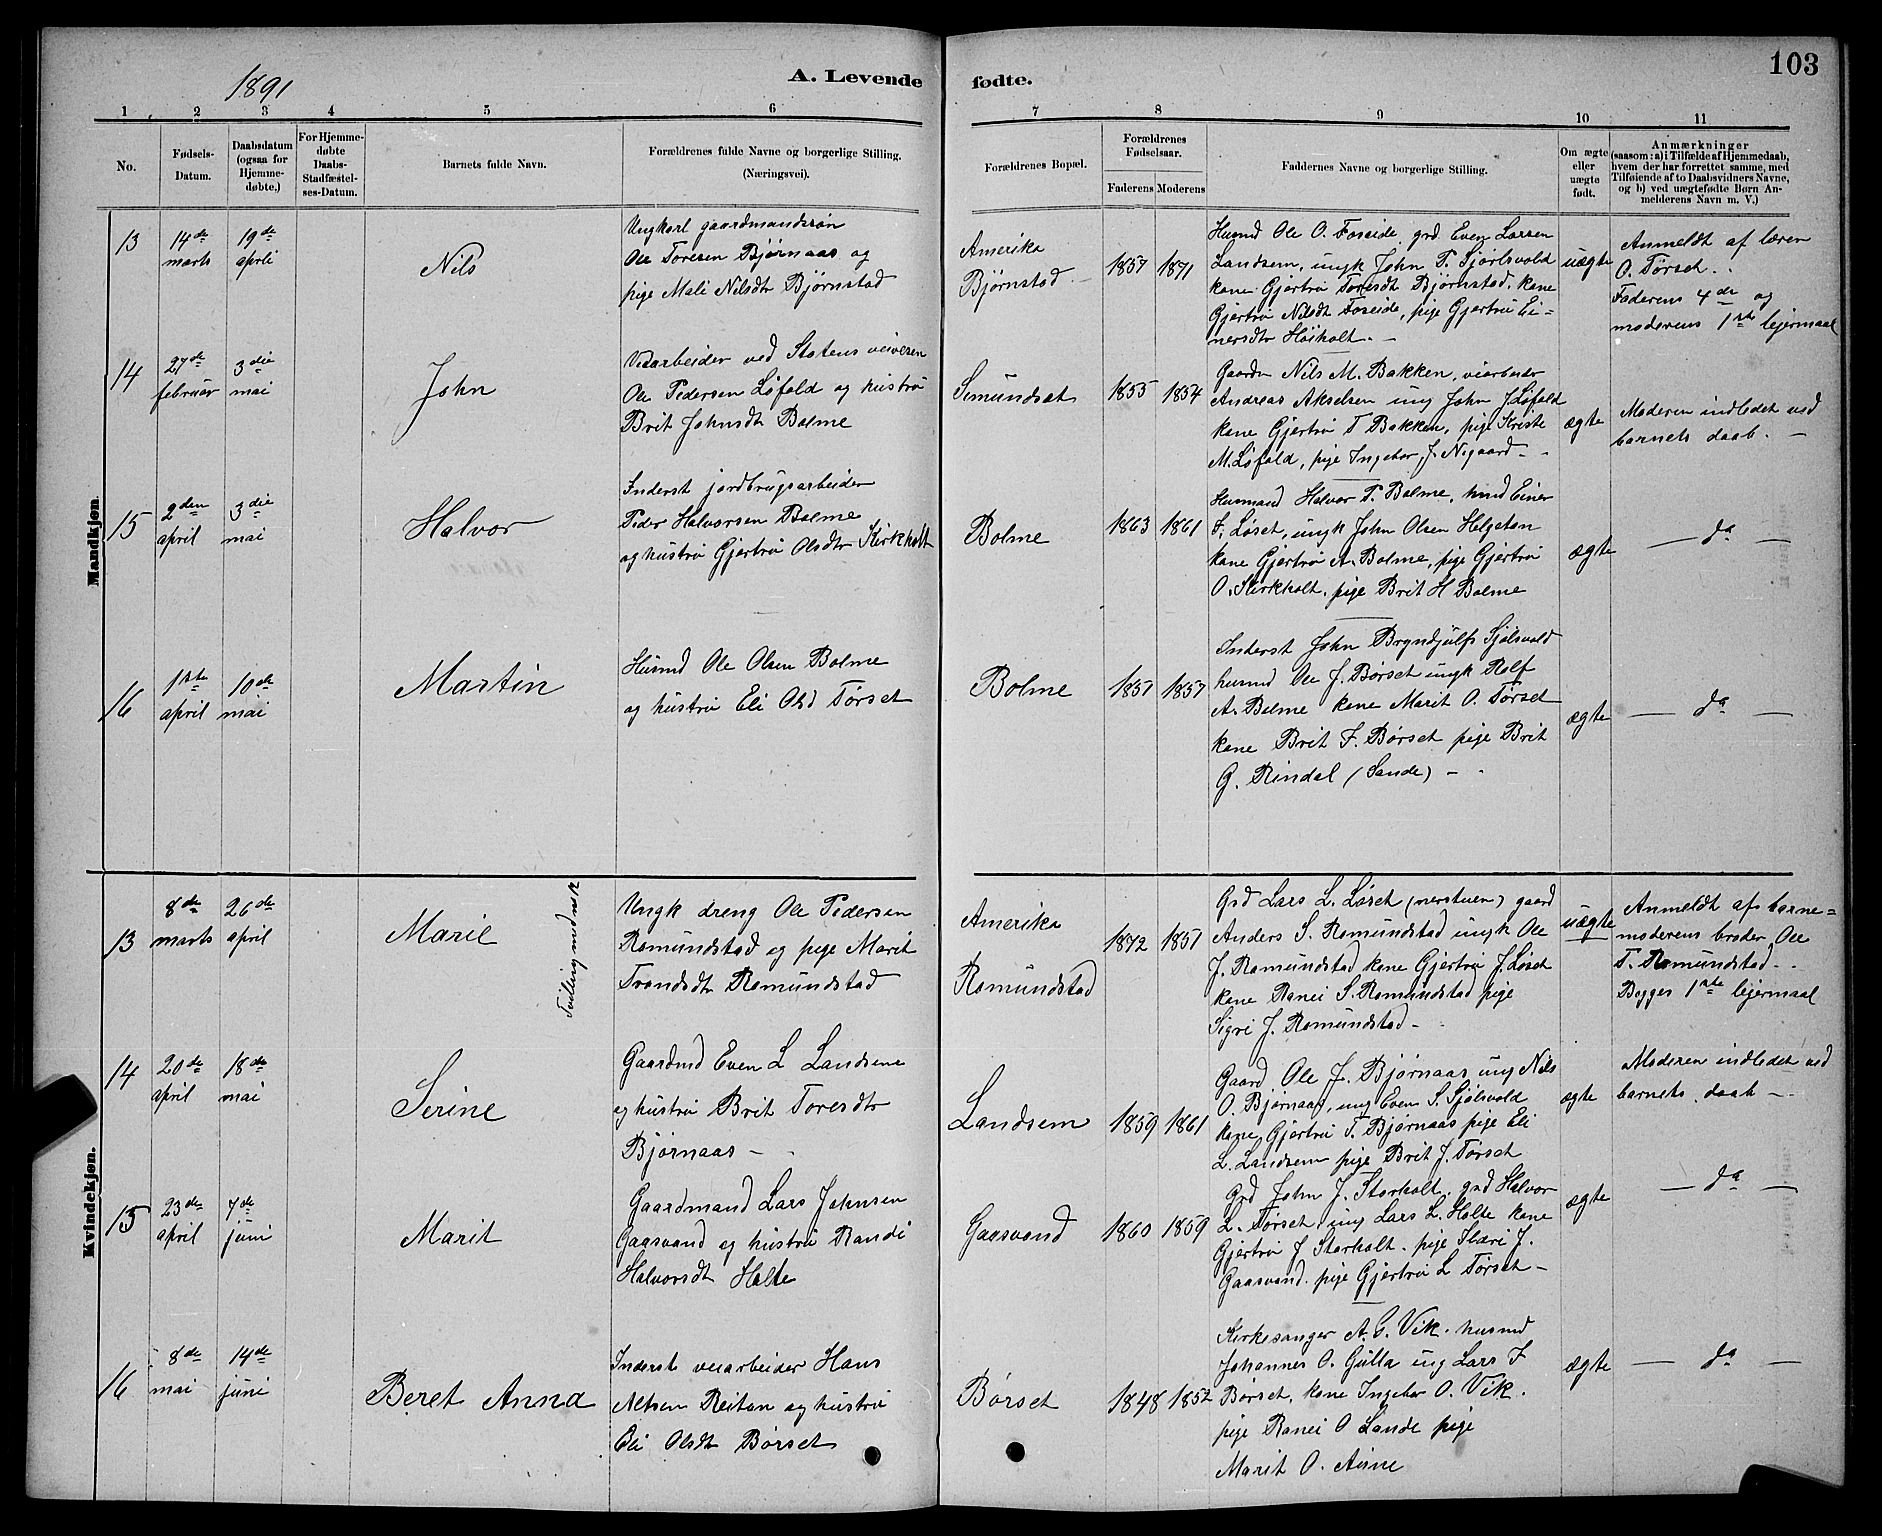 1891
A. Levende
fødte.
103
1
2
3
4
5
6
7
8
9
10
11
No.
Fødsels-
Datum.
Daabsdatum
(ogsaa for
Hjemme-
døbte.)
For Hjemme-
døbte
Daabs-
Stadfæstel-
ses-Datum.
Barnets fulde Navn.
Forældrenes fulde Navne og borgerlige Stilling.
(Næringsvei).
Forældrenes Bopæl.
Forældrenes
Fødselsaar.
Faderens
Moderens
Faddernes Navne og borgerlige Stilling.
Om ægte
eller
uægte
født.
Anmærkninger
(saasom: a) i Tilfælde af Hjemmedaab,
hvem der har forrettet samme, med
Tilføiende af to Daabsvidners Navne,
og b) ved uægtefødte Børn An-
melderens Navn m. V.)
Mandkjøn.
13
14de
marts
19de
april
Nils
Ungkarl gaardmandssøn
Ole Toresen Bjørnaas og
pige Mali Nilsdtr Bjørnstad
Amerika
Bjørnstad
1857
1871
Husmd Ole O. Foseide, grd. Even Larsen
Landsem, ungk John T. Sjølsvold
kone Gjertrø Toresdt Bjørnstad, kone
Gjertrø Nilsdt Foseide, pige Gjertrø Ei-
nersdtr Høiholt. -
uægte
Anmeldt af lærer
O. Tørset.
Faderens 4de og
moderens 1ste lejermaal
14
27de
februar
3die
mai
John
Veiarbeider ved Statens veivesen
Ole Pedersen Løfald og hustrø
Brit Johnsdt Bolme
Simundset
1855
1854
Gaardm Nils M. Bakken, veiarbeider
Andreas Akselsen ung John J. Løfald
kone Gjertrø T Bakken, pige Kristi
M. Løfald, pige Ingebor J. Nygaard -
ægte
Moderen indledet ved
barnets daab. -
15
2den
april
3die
mai
Halvor
Inderst jordbrugsarbeider
Peder Halvorsen Bolme
og hustrø Gjertrø Olsdtr Kirkholt
Bolme
1863
1861
Husmand Halvor P. Bolme, husmd Einer
F. Løset, ungk John Olsen Helgetun
kone Gjertrø A. Bolme, pige Gjertrø
O. Kirkholt, pige Brit H Bolme
ægte
— da —
16
1ste
april
10de
mai
Martin
Husmd Ole Olsen Bolme
og hustrø Eli Olsd Tørset
Bolme
1857
1857
Inderst John Bryndjulfs Sjølsvold
husmd Ole J. Børset ungk Rolf
A. Bolme kone Marit O. Tørset
kone Brit F. Børset pige Brit
G. Rindal (Sande) -
ægte
— da —
Kvindekjøn.
13
8de
marts
26de
april
Marit
Tvilling med
Ungk dreng Ole Pedersen
Romundstad og pige Marit
Trondsdtr Romundstad
Amerika
Romundstad
1872
1857
Grd Lars L. Løset (nerstuen) gaard
Anders S. Romundstad ungk Ole
J. Romundstad kone Gjertrø J. Løset
kone Ranei S. Romundstad pige
Sigri J. Romundstad -
uægte
Anmeldt af barne=
moderens broder Ole
T. Romundstad.
Begges 1ste lejermaal
14
20de
april
18de
mai
Serine
Gaardmd Even L Landsem
og hustrø Brit Toresdtr
Bjørnaas -
Landsem
1859
1861
Gaard Ole J. Bjørnaas ung Nils
O. Bjørnaas, ung Even S. Sjølsvold
kone Gjertrø T. Bjørnaas pige Eli
L. Landsem pige Brit J. Tørset
ægte
Moderen indledet ved
barnets daab -
15
23de
april
7de
juni
Marit
Gaardmand Lars Johnsen
Gaasvand og hustrø Randi
Halvorsdt Holte
Gaasvand
1860
1859
Grd John J. Storholt. grd Halvor
L. Tørset, ung Lars L. Holte kone
Gjertrø J Storholt. pige Sleri J.
Gaasvand. pige Gjertrø L Tørset -
ægte
— da —
16
8de
mai
14de
juni
Beret Anna
Inderst veiarbeider Hans
Nilsen Reitan og hustrø
Eli Olsdt Børset
Børset
1848
1852
Kirkesanger A. G. Vik. husmd
Johannes O. Gulla ung Lars F
Børset, kone Ingebor O. Vik.
pige Ranei O Lande pige
Marit O. Aune
ægte
— da —